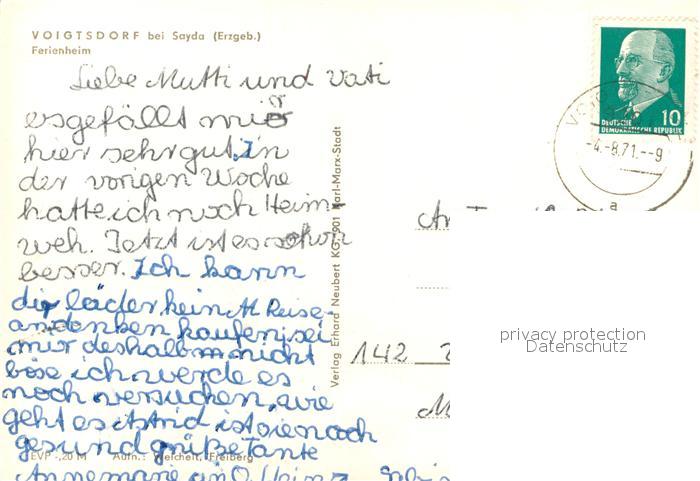 VOIGTSDORF bei Sayda (Erzgeb.)
Ferienheim
Liebe Mutti und Vati
esgefällt mir
hier sehr gut. In
der vorigen Woche
hatte ich noch Heim
weh. Jetzt ist es schon
besser. Ich kann
dir läder kein Reise-
andenken kaufen, sei
mir deshalb nicht
böse ich werde es
noch versuchen, wie
geht es Astrid ist sie noch
gesund grüße Tante
Annemarie
EVP -,20 M Aufn.: Weichelt, Freiberg
Verlag Erhard Neubert KG, 901 Karl-Marx-Stadt
DEUTSCHE
DEMOKRATISCHE REPUBLIK
10
-4.-8.71.--9
a
142
privacy protection
Datenschutz